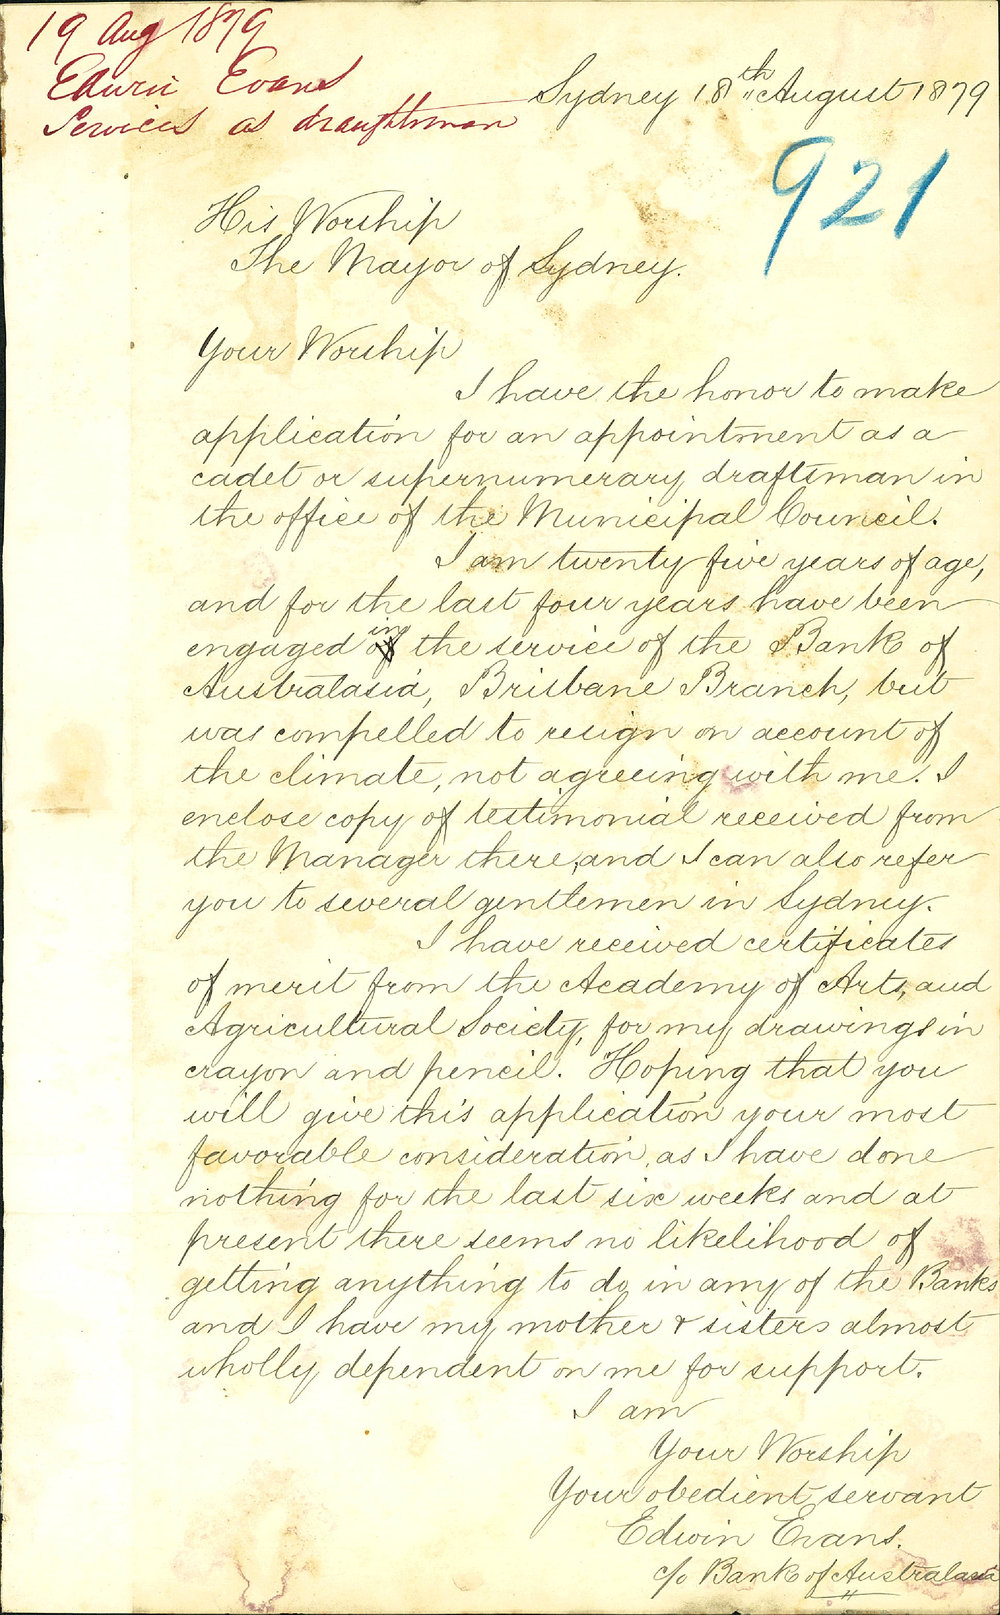 19 Aug 1879
Edwin Evans
Services as draughtsman
Sydney 18th August 1879
921
His Worship
The Mayor of Sydney.
Your Worship
I have the honor to make
application for an appointment as a
cadet or supernumerary draftsman in
the office of the Municipal Council.
I am twenty five years of age,
and for the last four years have been
engaged in the service of the Bank of
Australasia, Brisbane Branch, but
was compelled to resign on account of
the climate, not agreeing with me. I
enclose copy of testimonial received from
the Manager there, and I can also refer
you to several gentlemen in Sydney.
I have received certificates
of merit from the Academy of Arts, and
Agricultural Society, for my drawings in
crayon and pencil. Hoping that you
will give this application your most
favorable consideration, as I have done
nothing for the last six weeks and at
present there seems no likelihood of
getting anything to do in any of the Banks
and I have my mother & sisters almost
wholly dependent on me for support.
I am
Your Worship
Your obedient servant
Edwin Evans.
c/o Bank of Australasia